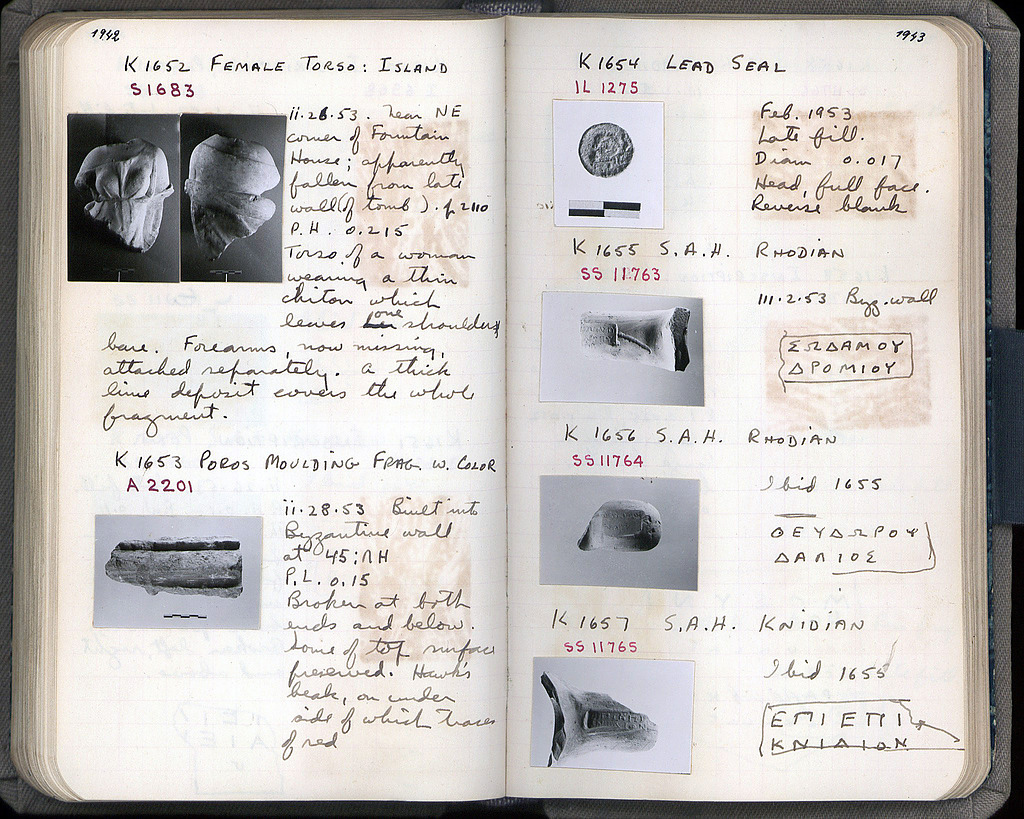 1942
K 1652 FEMALE TORSO: ISLAND
S 1683
ii.28.53. Near NE
corner of Fountain
House; apparently
fallen from late
wall (of tomb). p 2110
P.H. 0.215
Torso of a woman
wearing a thin
chiton which
leaves one shoulder
bare. Forearms, now missing,
attached separately. A thick
lime deposit covers the whole
fragment.
K 1653 POROS MOULDING FRAG. W. COLOR
A 2201
ii.28.53 Built into
Byzantine wall
at 45:ΛH
P.L. 0.15
Broken at both
ends and below.
Some of top surface
preserved. Hawk's
beak, on under
side of which traces
of red
1943
K 1654 LEAD SEAL
IL 1275
Feb. 1953
Late fill.
Diam 0.017
Head, full face.
Reverse blank
K 1655 S.A.H. RHODIAN
SS 11763
III.2.53 Byz. wall
ΣΩΔΑΜΟΥ
ΔΡΟΜΙΟΥ
K 1656 S.A.H. RHODIAN
SS 11764
Ibid 1655
ΘΕΥΔΩΡΟΥ
ΔΑΛΙΟΣ
K 1657 S.A.H. KNIDIAN
SS 11765
Ibid 1655
ΕΠΙΕΠΙ
ΚΝΙΔΙΟΝ